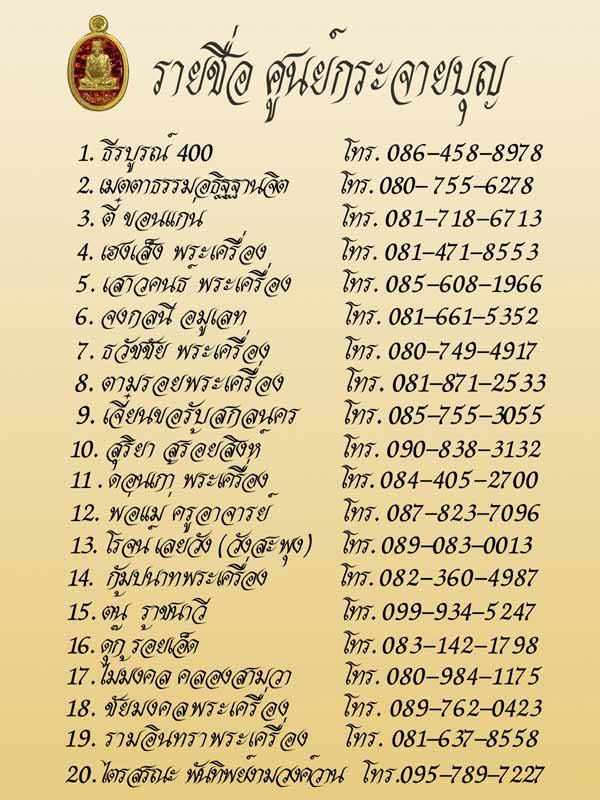 รายชื่อ ศูนย์กระจายบุญ
1. ธีรบูรณ์ 400 โทร. 086-458-8978
2. เมตตาธรรมอธิฐฐานจิต โทร. 080-755-6278
3. ตี๋ ขอนแก่น โทร. 081-718-6713
4. เฮงเส็ง พระเครื่อง โทร. 081-471-8553
5. เสาวคนธ์ พระเครื่อง โทร. 085-608-1966
6. จงกลนี อมูเลท โทร. 081-661-5352
7. ธวัชชัย พระเครื่อง โทร. 080-749-4917
8. ตามรอยพระเครื่อง โทร. 081-871-2533
9. เจี๋ยนขอรับสกลนคร โทร. 085-755-3055
10. สุริยา สร้อยสิงห์ โทร. 090-838-3132
11. ดอนเก่า พระเครื่อง โทร. 084-405-2700
12. พ่อแม่ ครูอาจารย์ โทร. 087-823-7096
13. โรจน์ เลยวัง (วังสะพุง) โทร. 089-083-0013
14. กัมปนาทพระเครื่อง โทร. 082-360-4987
15. ต้น ราชนาวี โทร. 099-934-5247
16. ดุ๊ก ร้อยเอ็ด โทร. 083-142-1798
17. ไม้มงคล คลองสามวา โทร. 080-984-1175
18. ชัยมงคลพระเครื่อง โทร. 089-762-0423
19. รามอินทราพระเครื่อง โทร. 081-637-8558
20. ไตรสรณะ พันทิพย์งามวงค์วาน โทร.095-789-7227